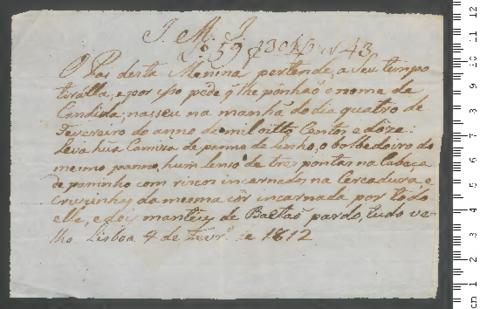 J. M. J.
Nº 59 f 30 N 43
O Pai desta Menina pertende, a Seu tempo
tiralla, e por isso pede q̃ lhe ponhão o nome de
Candida, nasseu na manhã do dia quatro de
Fevereiro do anno de mil oitto Centos e dôze:
Leva hũa Camiza de panno de Linho, o borbedouro do
mesmo panno, hum lenso de tres pontas na Cabaça
de paninho com riscos incarnados na Cercadura, e
Cruzinhas da mesma côr incarnada por tôdo
elle, e dois manteus de Baetaõ pardo, tudo ve-
lho Lisboa 4 de Fevrº. de 1812